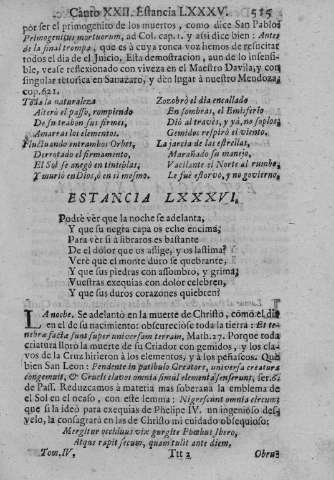 Canto XXII. Estancia LXXXV. 515
por ser el primogenito de los muertos, como dice San Pablo
Primogenitus mortuorum, ad Col. cap. 1. y asi dice bien: Antes
de la final trompa, que es à cuya ronca voz hemos de resucitar
todos el dia de el Juicio. Esta demostracion, aun de lo insensi-
ble, vease reflexionado con viveza en el Maestro Davila, y con
singular retorica en Sanazaro, y dèn lugar à nuestro Mendoza,
cap. 621.
Toda la naturaleza
Alterò el passo, rompiendo
De su teson sus firmes,
Amarras los elementos.
Fluctuando entrambos Orbes,
Derrotado el firmamento,
El Sol se anegò en tinieblas,
Y murió en Dios, ò en sí mesmo.
Zozobrò el dia encallado
En sombras, el Emisferio
Diò al travès, y yà, no soplos
Gemidos respirò el viento.
La jarcia de las estrellas,
Marañado su manejo,
Vacilante el Norte al rumbo,
Le fuè estorvo, y no govierno.
ESTANCIA LXXXVI.
Podrè vèr que la noche se adelanta,
Y que su negra capa os eche encima;
Para vèr si à libraros es bastante
De el dolor que os aflige, y os lastima?
Verè que el monte duro se quebrante,
Y que sus piedras con assombro, y grima,
Vuestras exequias con dolor celebren,
Y que sus duros corazones quiebren?
LA noche. Se adelantò en la muerte de Christo, como el dia
en el de su nacimiento: obscureciose toda la tierra: Et te-
nebræ facta sunt super universam terram, Math. 27. Porque toda
criatura llorò la muerte de su Criador con gemidos, y los cla-
vos de la Cruz hirieron à los elementos, y à los peñascos. Que
bien San Leon: Pendente in patibulo Creatore, universa creatura
congemuit, & Crucis clavos omnia simul elementa senserunt, ser. 6.
de Pass. Reduzcamos à materia mas soberana la emblema de
el Sol en el ocaso, con este lemma: Nigrescunt omnia circum;
que si la ideò para exequias de Phelipe IV. un ingenioso des-
velo, la consagrarà en las de Christo mi cuidado obsequioso:
Mergitur occiduus vix gurgite Phœbus Ibero,
Atque rapit secum, quam tulit ante diem,
Tom. IV, Ttt 2 Obru-